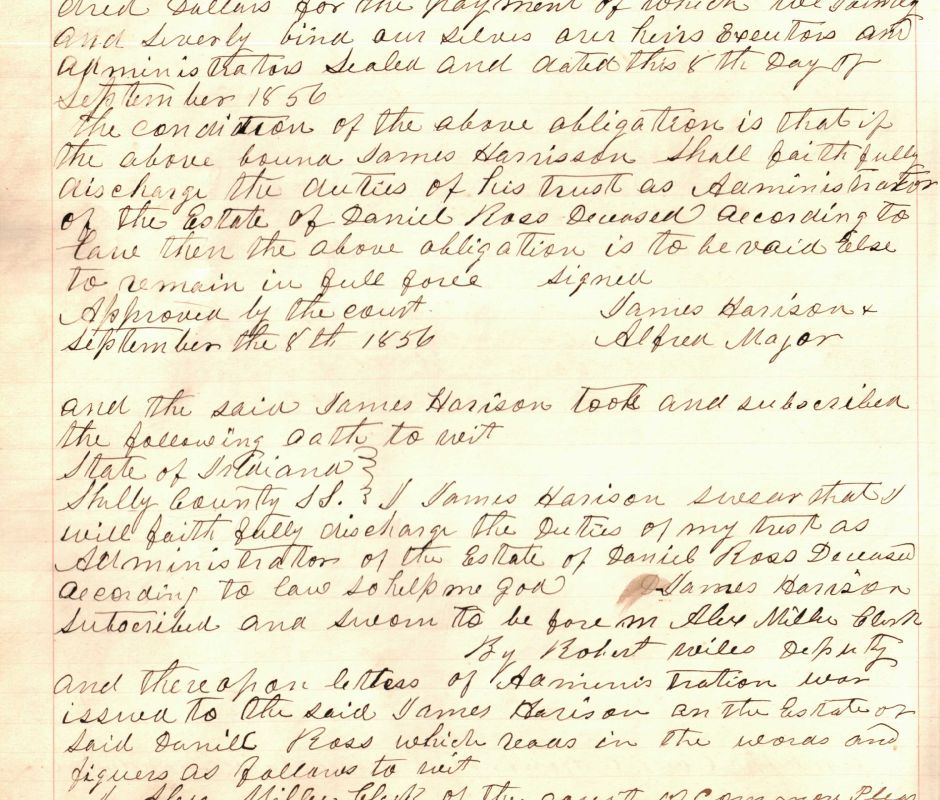 dred Dollars for the payment of which we Jointly
and Severly bind our selves our heirs Executors and
administrators Sealed and dated this 8th Day of
September 1856
the condition of the above obligation is that if
the above bound James Harrisson Shall faith fully
discharge the duties of his trust as Administrator
of the Estate of Daniel Ross Deceased according to
law then the above obligation is to be void Else
to remain in full force signed
Approved by the court. James Harison &
September the 8th 1856 Alfred Major
and the said James Harison took and subscribed
the following oath to wit
State of Indiana
Shelby County SS. I James Harison swear that I
will faith fully discharge the Duties of my trust as
Administrator of the Estate of Daniel Ross Deceased
according to law so help me god James Harison
Subscribed and sworn to be fore m Alex Miller Clerk
By Robert wiles Deputy
and thereupon letters of Administration war
issued to the said James Harison on the Estate of
said Daniell Ross which reads in the words and
figuers as follows to wit
I Alex Miller Clerk of the court of Common Pleas